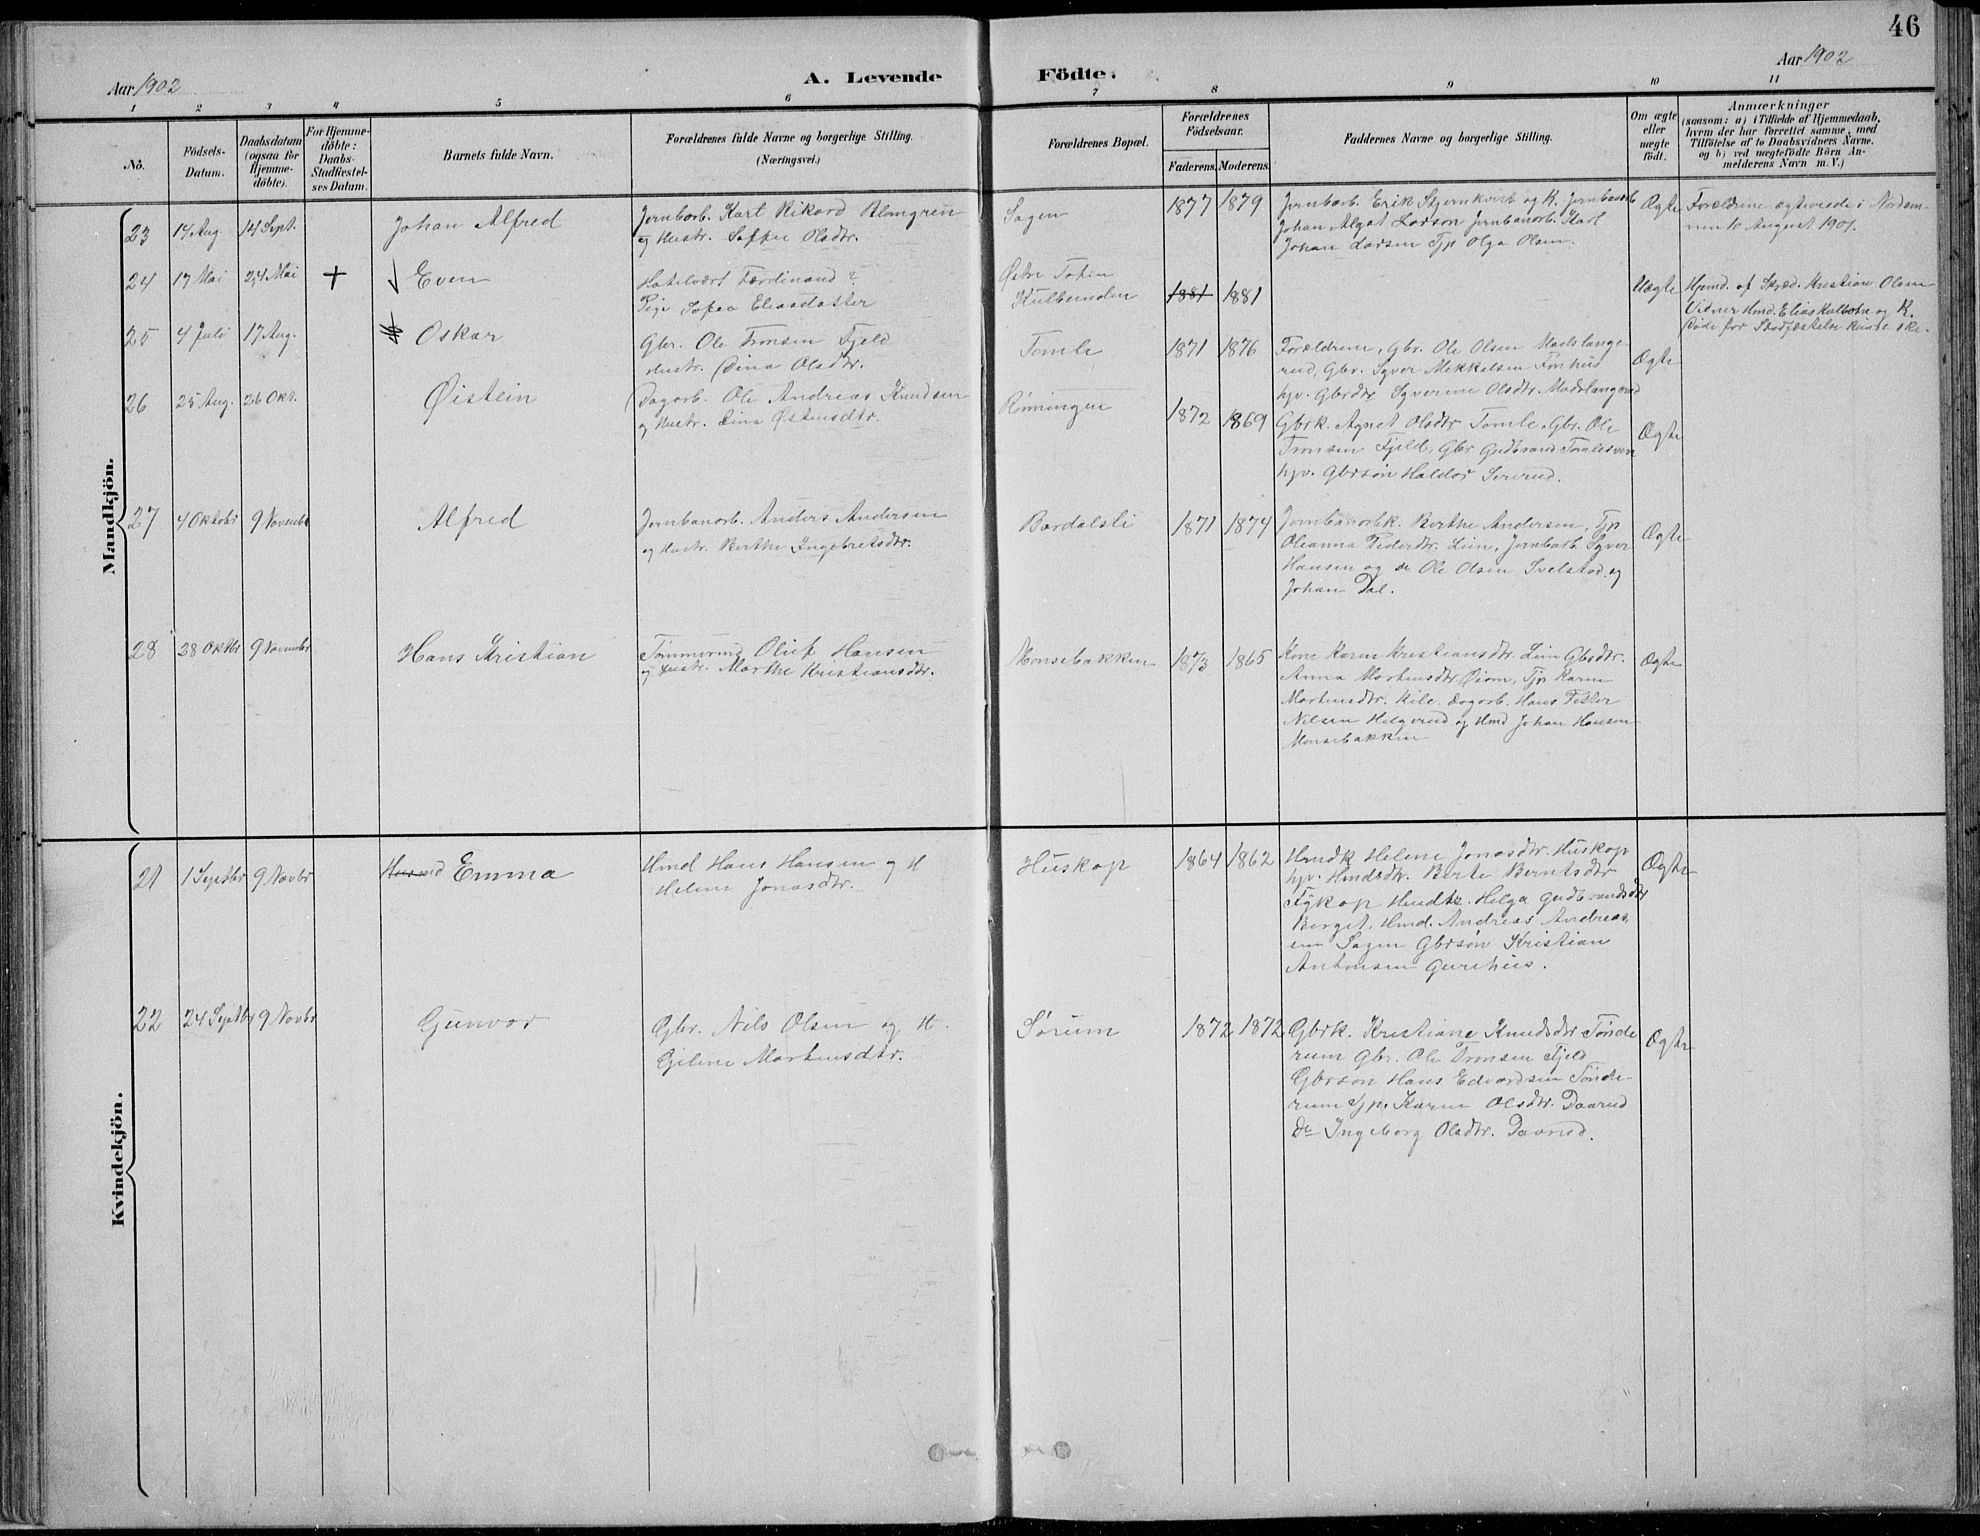 46
Aar 1902
A. Levende Födte.
Aar 1902
1 2 3 4 5 6 7 8 9 10 11
No.
Födsels-Datum.
Daabsdatum (ogsaa for Hjemme-döbte).
For Hjemme-döbte: Daabs-Stadfæstel-ses Datum.
Barnets fulde Navn.
Forældrenes fulde Navne og borgerlige Stilling.
(Næringsvei.)
Forældrenes Bopæl.
Forældrenes Födselsaar.
Faderens. Moderens.
Faddernes Navne og borgerlige Stilling.
Om ægte eller uægte født.
Anmærkninger
(saasom: a) i Tilfælde af Hjemmedaab,
hvem der har forrettet samme, med
Tilföielse af to Daabsvidners Navne,
og b) ved uægtefödte Börn An-
melderens Navn m. V.)
Mandkjön.
23 14 Aug 14 Sept. Johan Alfred
Jernbarb. Karl Rikard Blomgren
og Hustr. Olsdtr.
Sagen 1877 1879
Jernbarb. Erik Stjernkvist og K. Jernbanarb
Johan Algot Larson Jernbanarb. Karl
Johan Larsen Tjp Olga Olsen.
Ægte
Forældrene ægteviede i
10 August 1901.
24 17 Mai 24 Mai + Even
Ferdinand ?
Pige Sofea Eliasdatter
Østre Toten
1881 1881
Uægte
Hjemd. af Kristian Olsen
Vidner Hmd. Elias og K.
Døde før Stadfæstelse kunde ske.
25 4 Juli 17 Aug. Oskar
Gbr. Ole Tronsen Fjeld
Hustr. Dina Olsdtr.
Tomle 1871 1876
Forældrene, Gbr. Ole Olsen Madslange
rud, Gbr. Syver Mekkelsen Fønhus
hjv. Gbrdtr Syverine Olsdtr. Madslangerud
Ægte
26 25 Aug. 26 Okt. Øistein
Dagarb. Ole Andreas Knudsen
og Hustr. Dina Østensdtr.
Rønningen 1872 1869
Gbrk. Agnet Olsdtr Tomle, Gbr. Ole
Tronsen Fjeld, Gbr Gudbrand Tomlesveen
hjv. Gbrsøn Haldor
Ægte
27 4 Oktobr 9 Novembr Alfred
Jernbanarb. Anders Andersen
og Hustr. Berthe Ingebretsdtr.
Bærdalsli 1871 1874
Jernbanarbk. Berthe Andersen, Tjp
Oleanna Pedersdtr. Lien, Jernbarb. Syver
Hansen og do Ole Olsen og
Johan Dal.
Ægte
28 28 Oktbr 9 Novembr Hans Kristian
Oluf Hansen
og Hustr. Marthe Kristiansdtr.
Monsebakken 1873 1865
Kone Karen Kristiansdtr. Lien Gbrdtr.
Anna Martensdtr Tjp Karen
Martensdtr. Kile. Dagarb. Hans Petter
Nilsen Helgerud og Hmd Johan Hansen
Monsebakken
Ægte
Kvindekjön.
21 1 Septbr 9 Novbr Emma
Hmd Hans Hansen og H
Helene Jonasdtr.
Huskop 1864 1862
Hmdk Helene Jonasdtr. Huskop
hjv. Hmdsdtr. Berte Berntsdtr
Hmdtr. Helga Gudbrandsdtr
Berget, Hmd. Andreas Andreas
sen Sagen Gbrsøn Kristian
Antonsen Gurihus.
Ægte
22 24 Septbr 9 Novbr Gunvor
Gbr. Nils Olsen og H.
Martensdtr.
Sørum 1872 1872
Gbrk. Kristiane Knudsdtr Tønde
rum Gbr. Ole Tronsen Fjeld
Gbrsøn Hans Edvardsen Tønde-
rum Tjp. Karen Olsdtr. Daarud
Do Ingeborg Olsdtr. Daarud.
Ægte